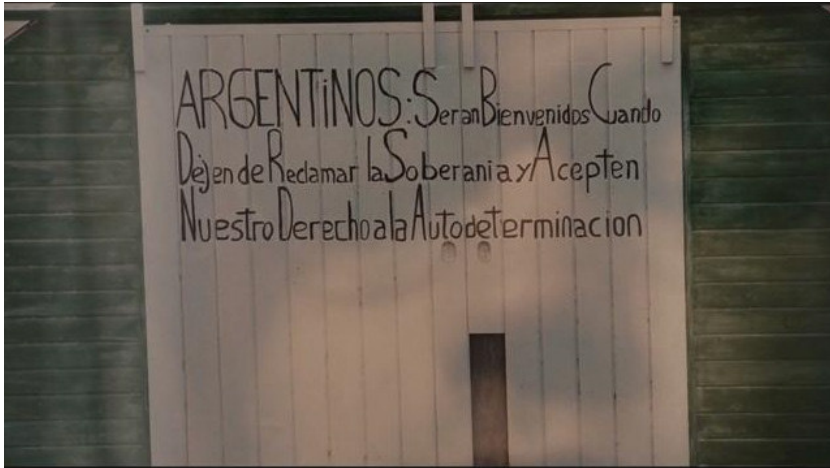 ARGENTiNOS: Seran Bienvenidos Cuando
Dejen de Reclamar la Soberania y Acepten
Nuestro Derecho a la Autodeterminacion